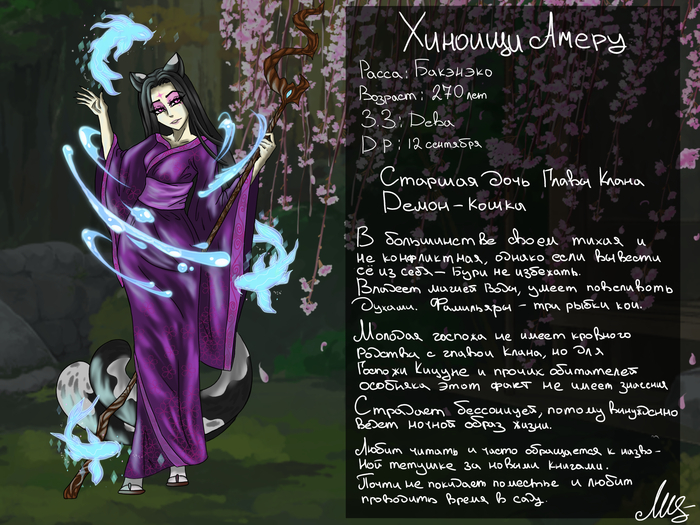 Хиноищи Амеру
Расса: Бакэнэко
Возраст: 270 лет
З.З: Дева
Dр: 12 сентября
Старшая дочь Главы Клана
Демон-кошка
В большинстве своем тихая и
не конфликтная, однако если вывести
её из себя - Бури не избежать.
Владеет магией Воды, умеет повелевать
духами. Фамильяры - три рыбки кои.
Молодая госпожа не имеет кровного
родства с главой клана, но для
Госпожи Кицуне и прочих обитателей
особняка этот факт не имеет значения
Страдает бессоницей, потому вынужденно
ведет ночной образ жизни.
Любит читать и часто обращается к назва-
ной тетушке за новыми книгами.
Почти не покидает поместье и любит
проводить время в саду.